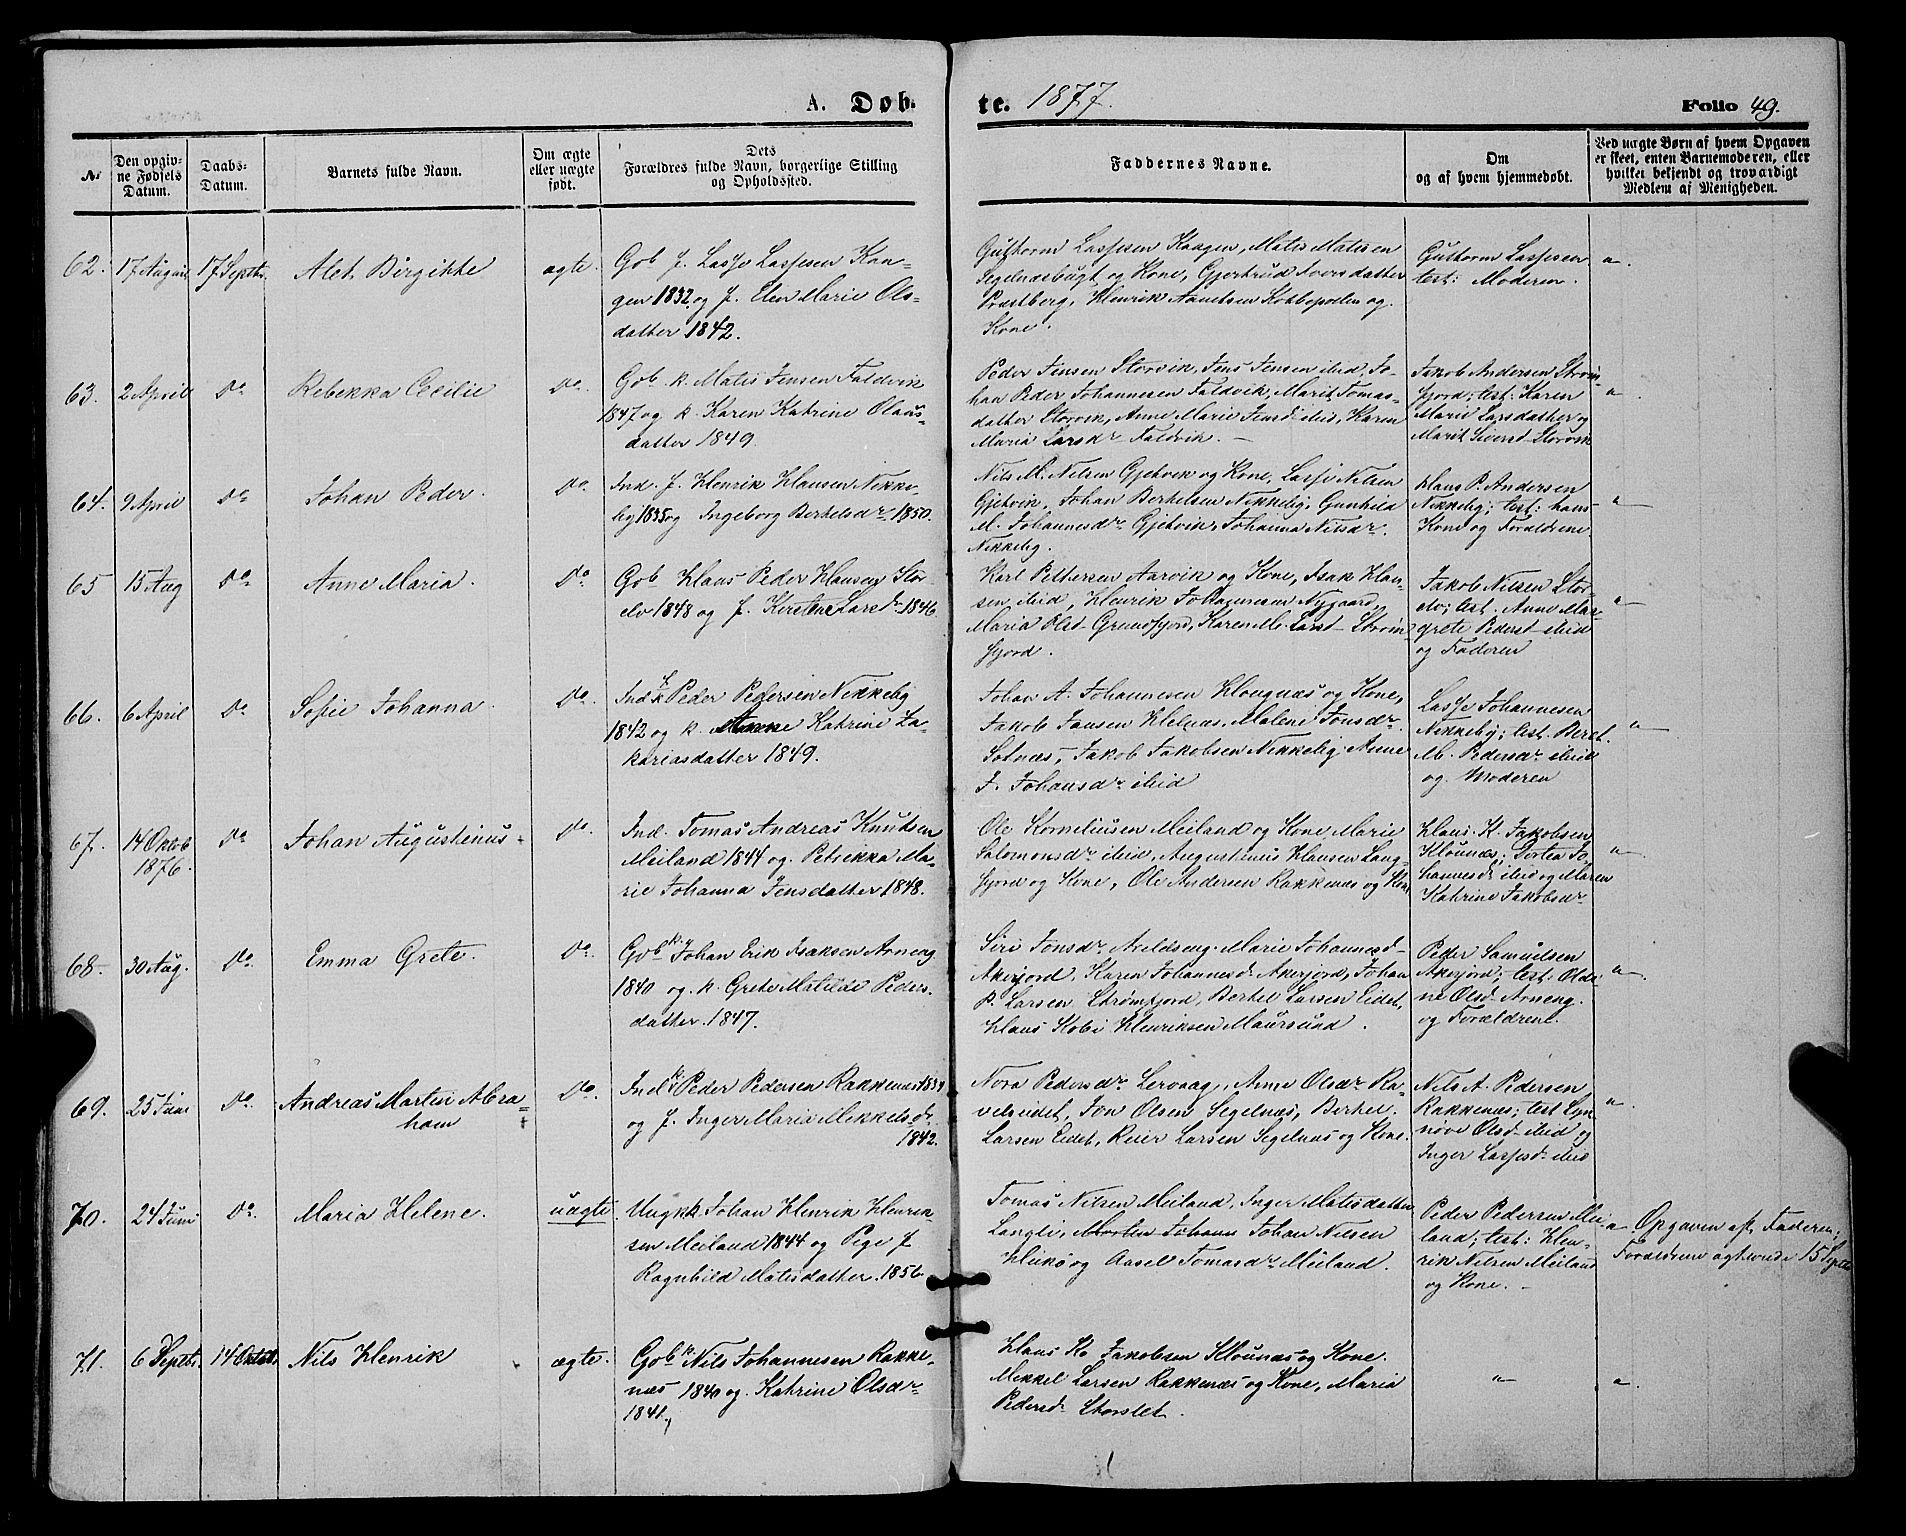 A. Døb-
te. 1877.
Folio 49.
№
Den opgiv-
ne Fødsels
Datum.
Daabs-
Datum.
Barnets fulde Navn.
Om ægte
eller uægte
født.
Dets
Forældres fulde Navn, borgerlige Stilling
og Opholdssted.
Faddernes Navne.
Om
og af hvem hjemmedøbt.
Ved uægte Børn af hvem Opgaven
er skeet, enten Barnemoderen, eller
hvilket bekjendt og troværdigt
Medlem af Menigheden.
62.
17 August
17 Septbr.
Alet Birgitte
ægte.
Gob f. Lasse Lassesen Kaa-
gen 1832 og f. Elen Marie Ols-
datter 1842.
Guttorm Lassesen Kaagen, Matis Matisen
Segelnæsbugt og Kone, Gjertrud Iversdatter
Præstberg, Henrik Kobbepollen og
Kone.
Guttorm Lassesen
test: Moderen.
"
63.
2 April
Do
Rebekka Cecilie
Do.
Gob. k. Matis Jensen Faldvik
1847 og k. Karen Katrine Olaus-
datter 1849.
Peder Jensen Storvik, Jens Jensen ibid, Jo-
han Peder Johannesen Faldvik, Marit Tomas-
datter Storvik, Anne Marie Jensd ibid, Karen
Maria Larsdr Faldvik. –
Jakob Andersen Storvik-
fjord; test: Karen
Marie Larsdatter og
Marit Siversd Storvik
"
64.
9 April
Do
Johan Peder.
Do
Ind. f. Henrik Hansen Nikke-
by 1835 og Ingeborg Berthelsdr 1850.
Nils M. Nilsen Gjetvik og Kone, Lasse Nilsen
Gjetvik, Johan Berthelsen Nikkeby, Gunhild
M. Johannesdr Gjetvik, Johanna Nilsdr.
Nikkeby.
Hans P. Andersen
Nikkeby; test: hans
Kone og Forældrene.
"
65
15 Aug
Do
Anne Maria.
Do
Gob Hans Peder Hansen Stor-
elv 1848 og f. Kirstine Larsdr 1846.
Karl Pettersen Aarvik og Kone, Isak Han-
sen ibid, Henrik Johannesen Nygaard,
Maria Olsd Grundfjord, Karen M. Larsd Storvik-
fjord.
Jakob Nilsen Stor-
elv; test. Anne Mar-
grete Pedersd ibid
og Faderen
"
66.
6 April
Do
Sofie Johanna.
Do.
Ind f Peder Pedersen Nikkeby
1842 og k. Anne Katrine Za-
kariasdatter 1849.
Johan A. Johannesen Haugnæs og Kone,
Jakob Hansen Helnæs, Malene Jonsdr.
Sotnæs, Jakob Jakobsen Nikkeby, Anne
J. Johansdr ibid
Lasse Johannesen
Nikkeby; test. Beret
M. Pedersdr ibid
og Moderen
"
67.
14 Oktob
1876.
Do
Johan Augustinus.
Do.
Ind. Tomas Andreas Knutsen
Meiland 1844 og Petrikka Ma-
rie Johanna Jensdatter 1848.
Ole Korneliusen Meiland og Kone Marie
Salomonsdr ibid, Augustinus Hansen Lang-
fjord og Kone, Ole Andersen Rakkenæs og Kone
Hans K. Jakobsen
Klounæs; Dortea Jo-
hannesd ibid og Maren
Katrine Jakobsdr
"
68.
30 Aug.
Do.
Emma Grete.
Do.
Gob k. Johan Erik Isaksen Arneng
1840 og k. Grete Matilde Peders-
datter 1847.
Siri Jonsdr Arildseng. Marie Johannesd
Akerjord, Karen Johannesd Akerjord, Johan
P. Larsen Strømfjord, Berthel Larsen Eidet,
Hans Kobi Henriksen Maursund.
Peder Samuelsen
Akerjord; test. Olde-
ne Olsd Arneng.
og Forældrene.
"
69.
25 Juni
Do.
Andreas Martin Abra-
ham
Do.
Ind. Peder Pedersen Rakkenæs 1839
og f. Inger Maria Mekkelsdr
1842.
Nora Pedersdr Lervaag, Anne Olsdr Ra-
velseidet, Jon Olsen Segelnæs, Berthel
Larsen Eidet, Reier Larsen Segelnæs og Kone.
Nils A. Pedersen
Rakkenæs; test Syn-
nøve Olsd ibid og
Inger Lassesd ibid
"
70.
24 Juni
Do.
Maria Helene.
uægte.
Ungk k Johan Henrik Henrik-
sen Meiland 1844 og Pige f
Ragnhild Matisdatter 1856.
Tomas Nilsen Meiland, Inger Matisdatter
Langli, Johan Nilsen
Hukø og Aasel Tomasdr Meiland.
Peder Pedersen Mei-
land; test: Hen-
rik Nilsen Meiland
og Kone. –
" Opgaven af Faderen;
Forældrene ægteviede 15 Septbr
71.
6 Septbr.
14 Oktobr.
Nils Henrik
ægte.
Gob k Nils Johannesen Rakke-
næs 1840 og Katrine Olsdr
1841
Hans K. Jakobsen Klounæs og Kone.
Mekkel Larsen Rakkenæs og Kone, Maria
Pedersd Storslet.
"
"